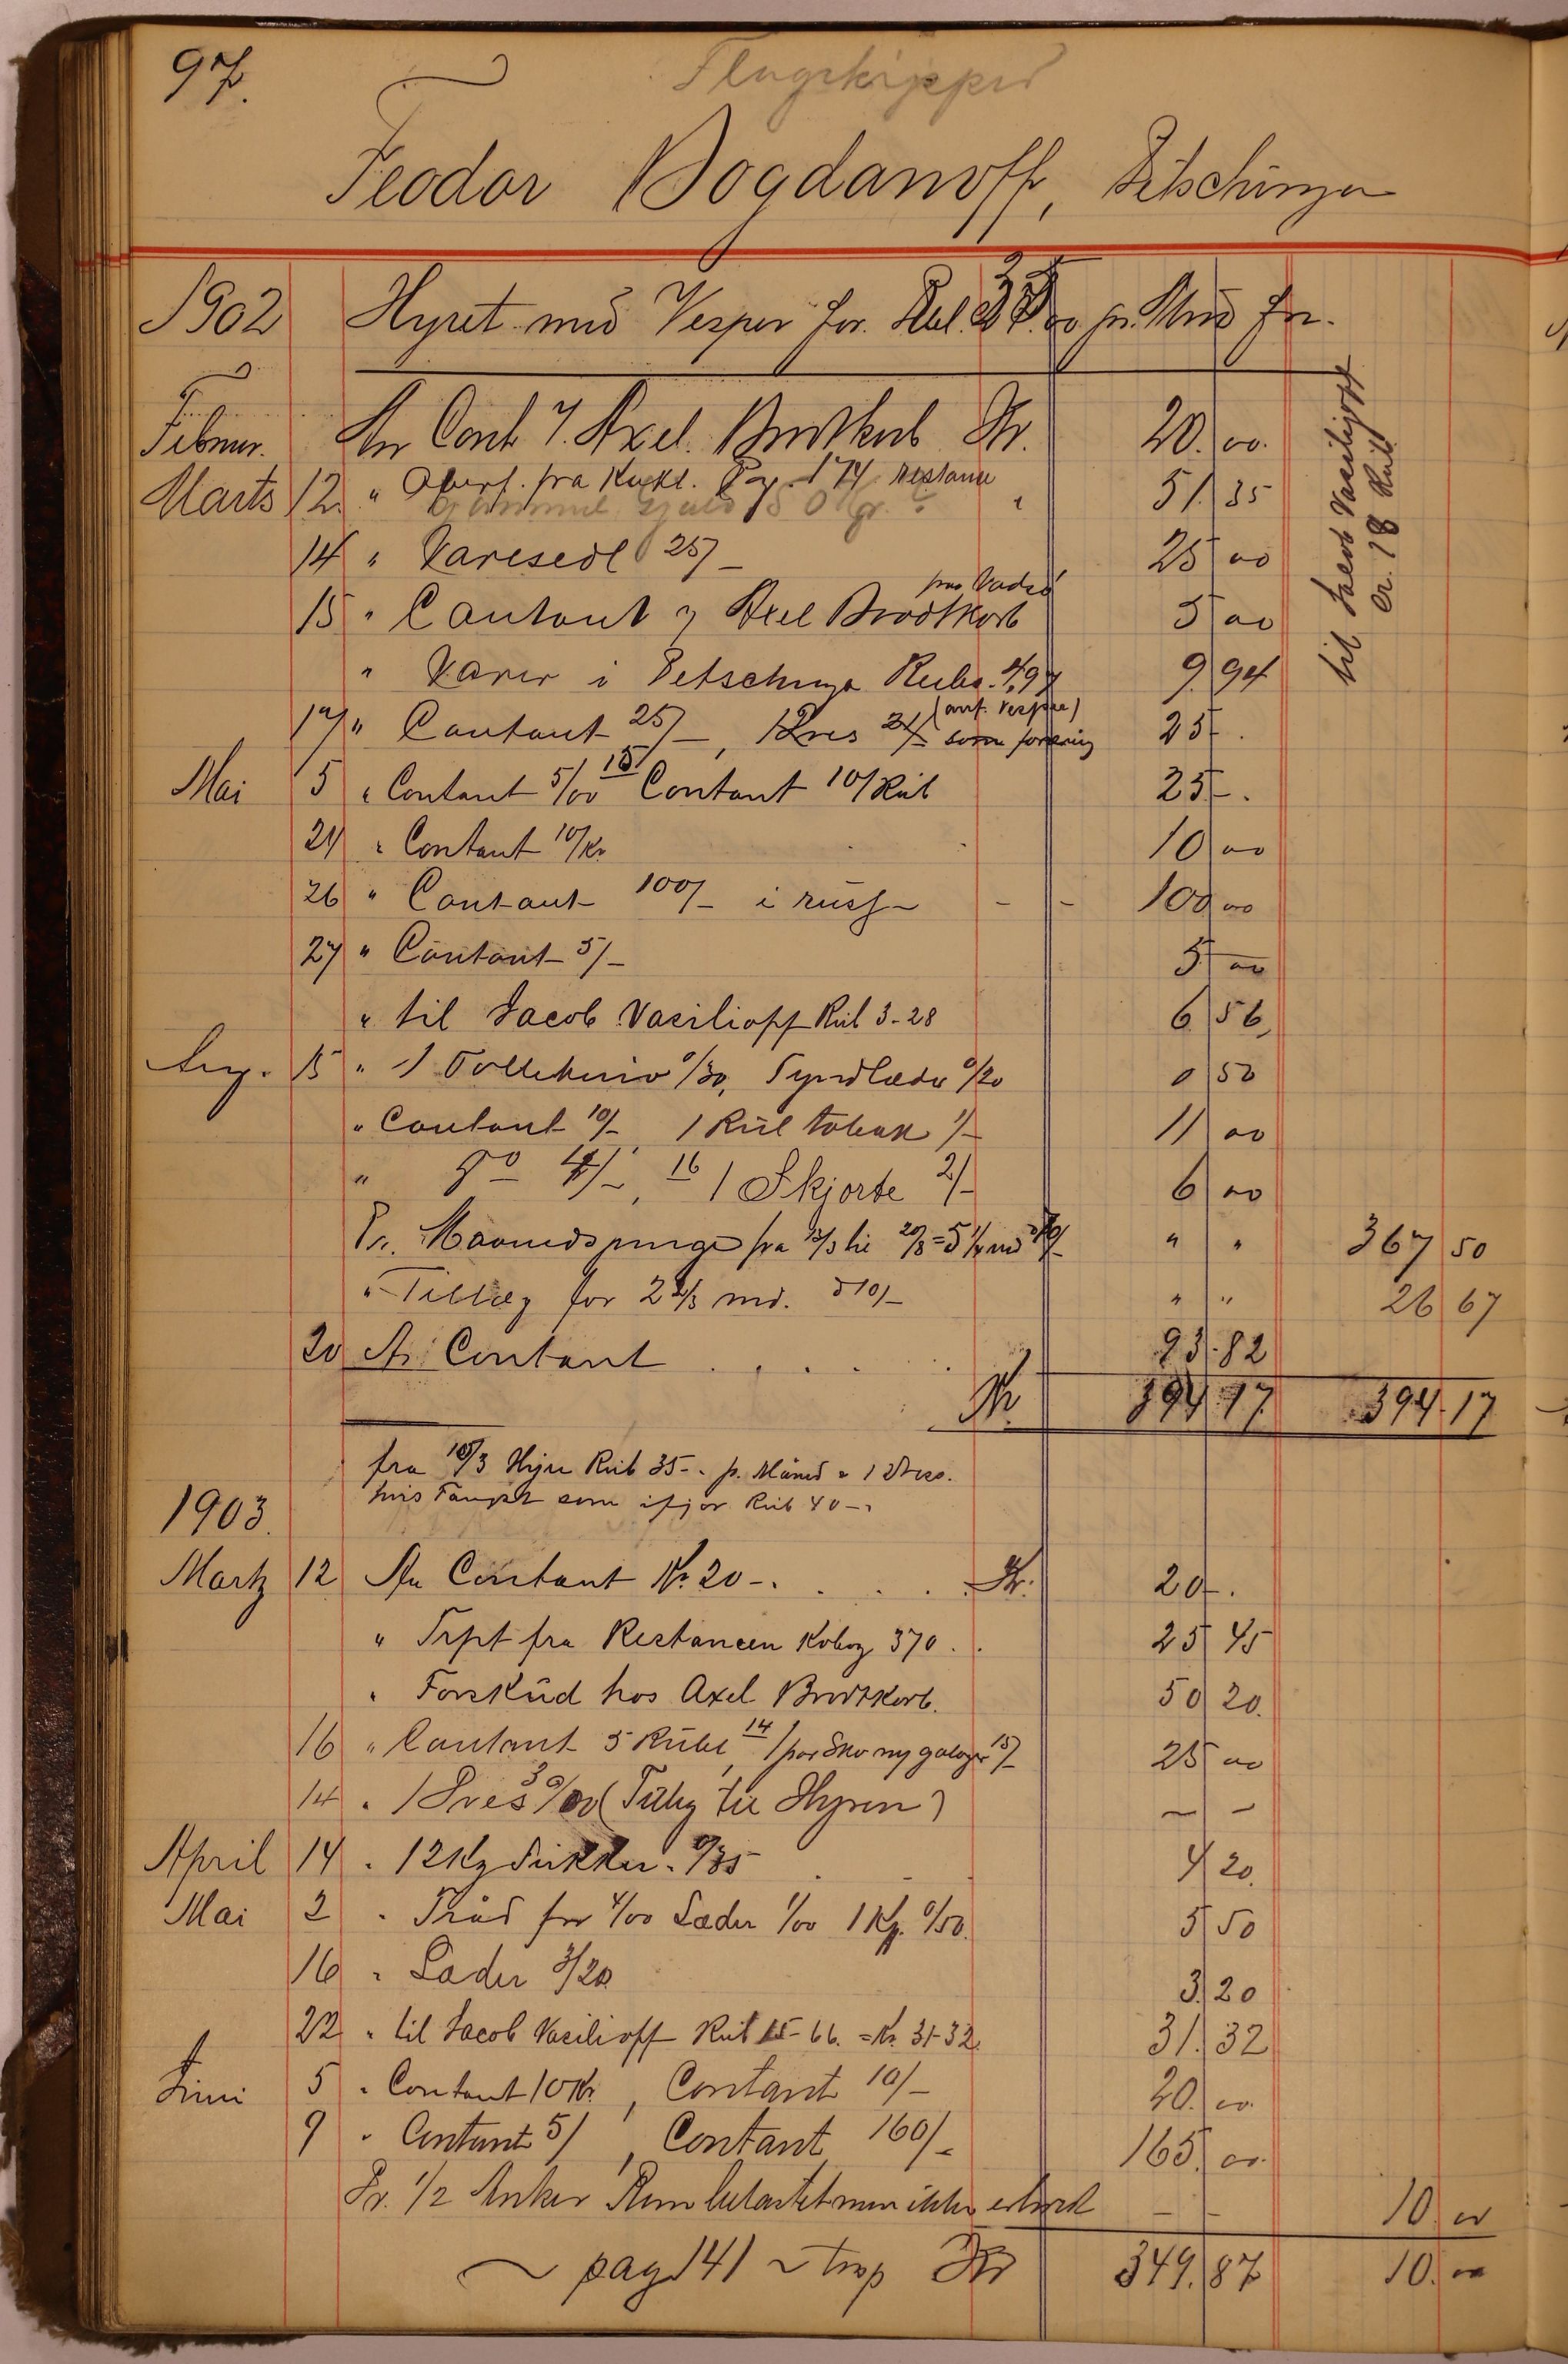 97.
Feodor Bogdanoff, Petschinga
1902 Hyret med Vesper for Rbl. 35.00 pr. Mnd fra.
Februar. An Cont Axel Brodtkorb Kr. 20.00.
Marts 12 " Overf. fra Pag. 174 restance " 51.35
Gammel Gjæld 50 kr.
14 " Varesedl 25/- 25 00
15 " Contant Axel Brodtkorb 5 00
paa Vadsö
" Varer i Petschinga Rubs. 4,97 9.94
17 " Contant 25/-, 1 Dres som foræring 25-.
(anf. Vesper)
Mai 5 " Contant 5/00 15/ Contant 10/Rub 25-.
24 " Contant 10/Kr. 10 00
26 " Contant 100/- i russ - - 100 00
27 " Contant 5/- 5 00
" til Jacob Vasilioff Rub 3-28 6 56
Aug. 15 " 1 Tollekniv 0/30, Tyndlæder 0/20 0 50
" Contant 10/- 1 Rul tobak 1/- 11 00
" do 4/-, 16 1 Skjorte 2/- 6 00
Pr. Maanedspenge fra til 20/8 = 5 1/4 md " " 367 50
" Tillæg for 2 2/3 md. à 10/- " " 26 67
20 An Contant . . . . 93.82
Kr. 394.17 394.17
til Jacob Vasilioff
cr. 18 Rub
fra 10/3 Hyre Rub 35-. p. Måned + 1 Dress.
hvis Fangst som ifjor Rub 40-.
1903.
Martz 12 An Contant Kr. 20-. . . . . Kr. 20-.
" Trpt fra Restancen Kobog 370 . . 25 45
" Forskud hos Axel Brodtkorb. 50 20.
16 " Contant 5 Rubl, 14 1 par Sko ny galoger 15/- 25 00
14 " 1 Dres 30/00 (Tillæg til Hyren) - -
April 14 " 12 Kg Sukker. 0/35 4 20.
Mai 2 " Tråd for 4/00 Læder 1/00 1 Kg. 0/50. 5 50
16 " Læder 3/20 3.20
22 " til Jacob Vasilioff Rub 15-66. = Kr. 31-32. 31.32
Juni 5 " Contant 10 Kr., Contant 10/- 20.00.
9 " Contant 5/, Contant 160/- 165.00.
Pr. 1/2 Anker Rum belastet men ikke erholdt - - 10.00
~ pag 141 ~ trsp Kr 349.87 10.00